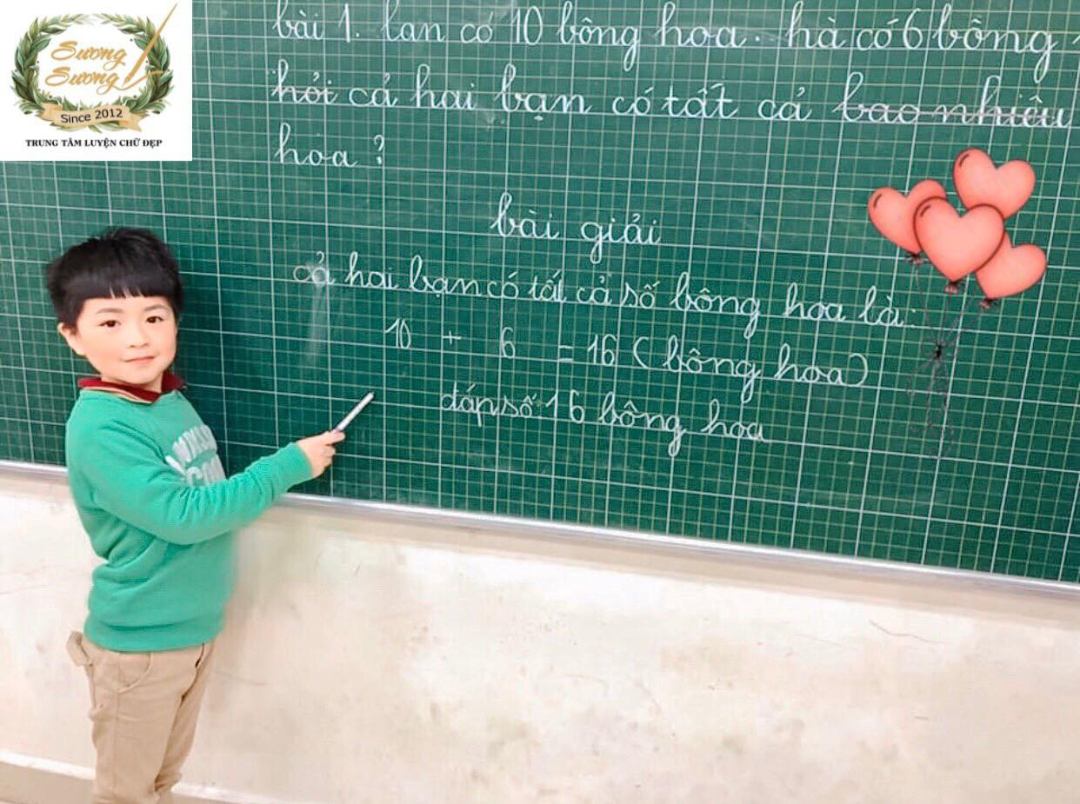 Sương
Sương
Since 2012
TRUNG TÂM LUYỆN CHỮ ĐẸP
bài 1. lan có 10 bông hoa. hà có 6 bông
hỏi cả hai bạn có tất cả bao nhiêu
hoa ?
bài giải
cả hai bạn có tất cả số bông hoa là:
10 + 6 = 16 ( bông hoa)
đáp số 16 bông hoa